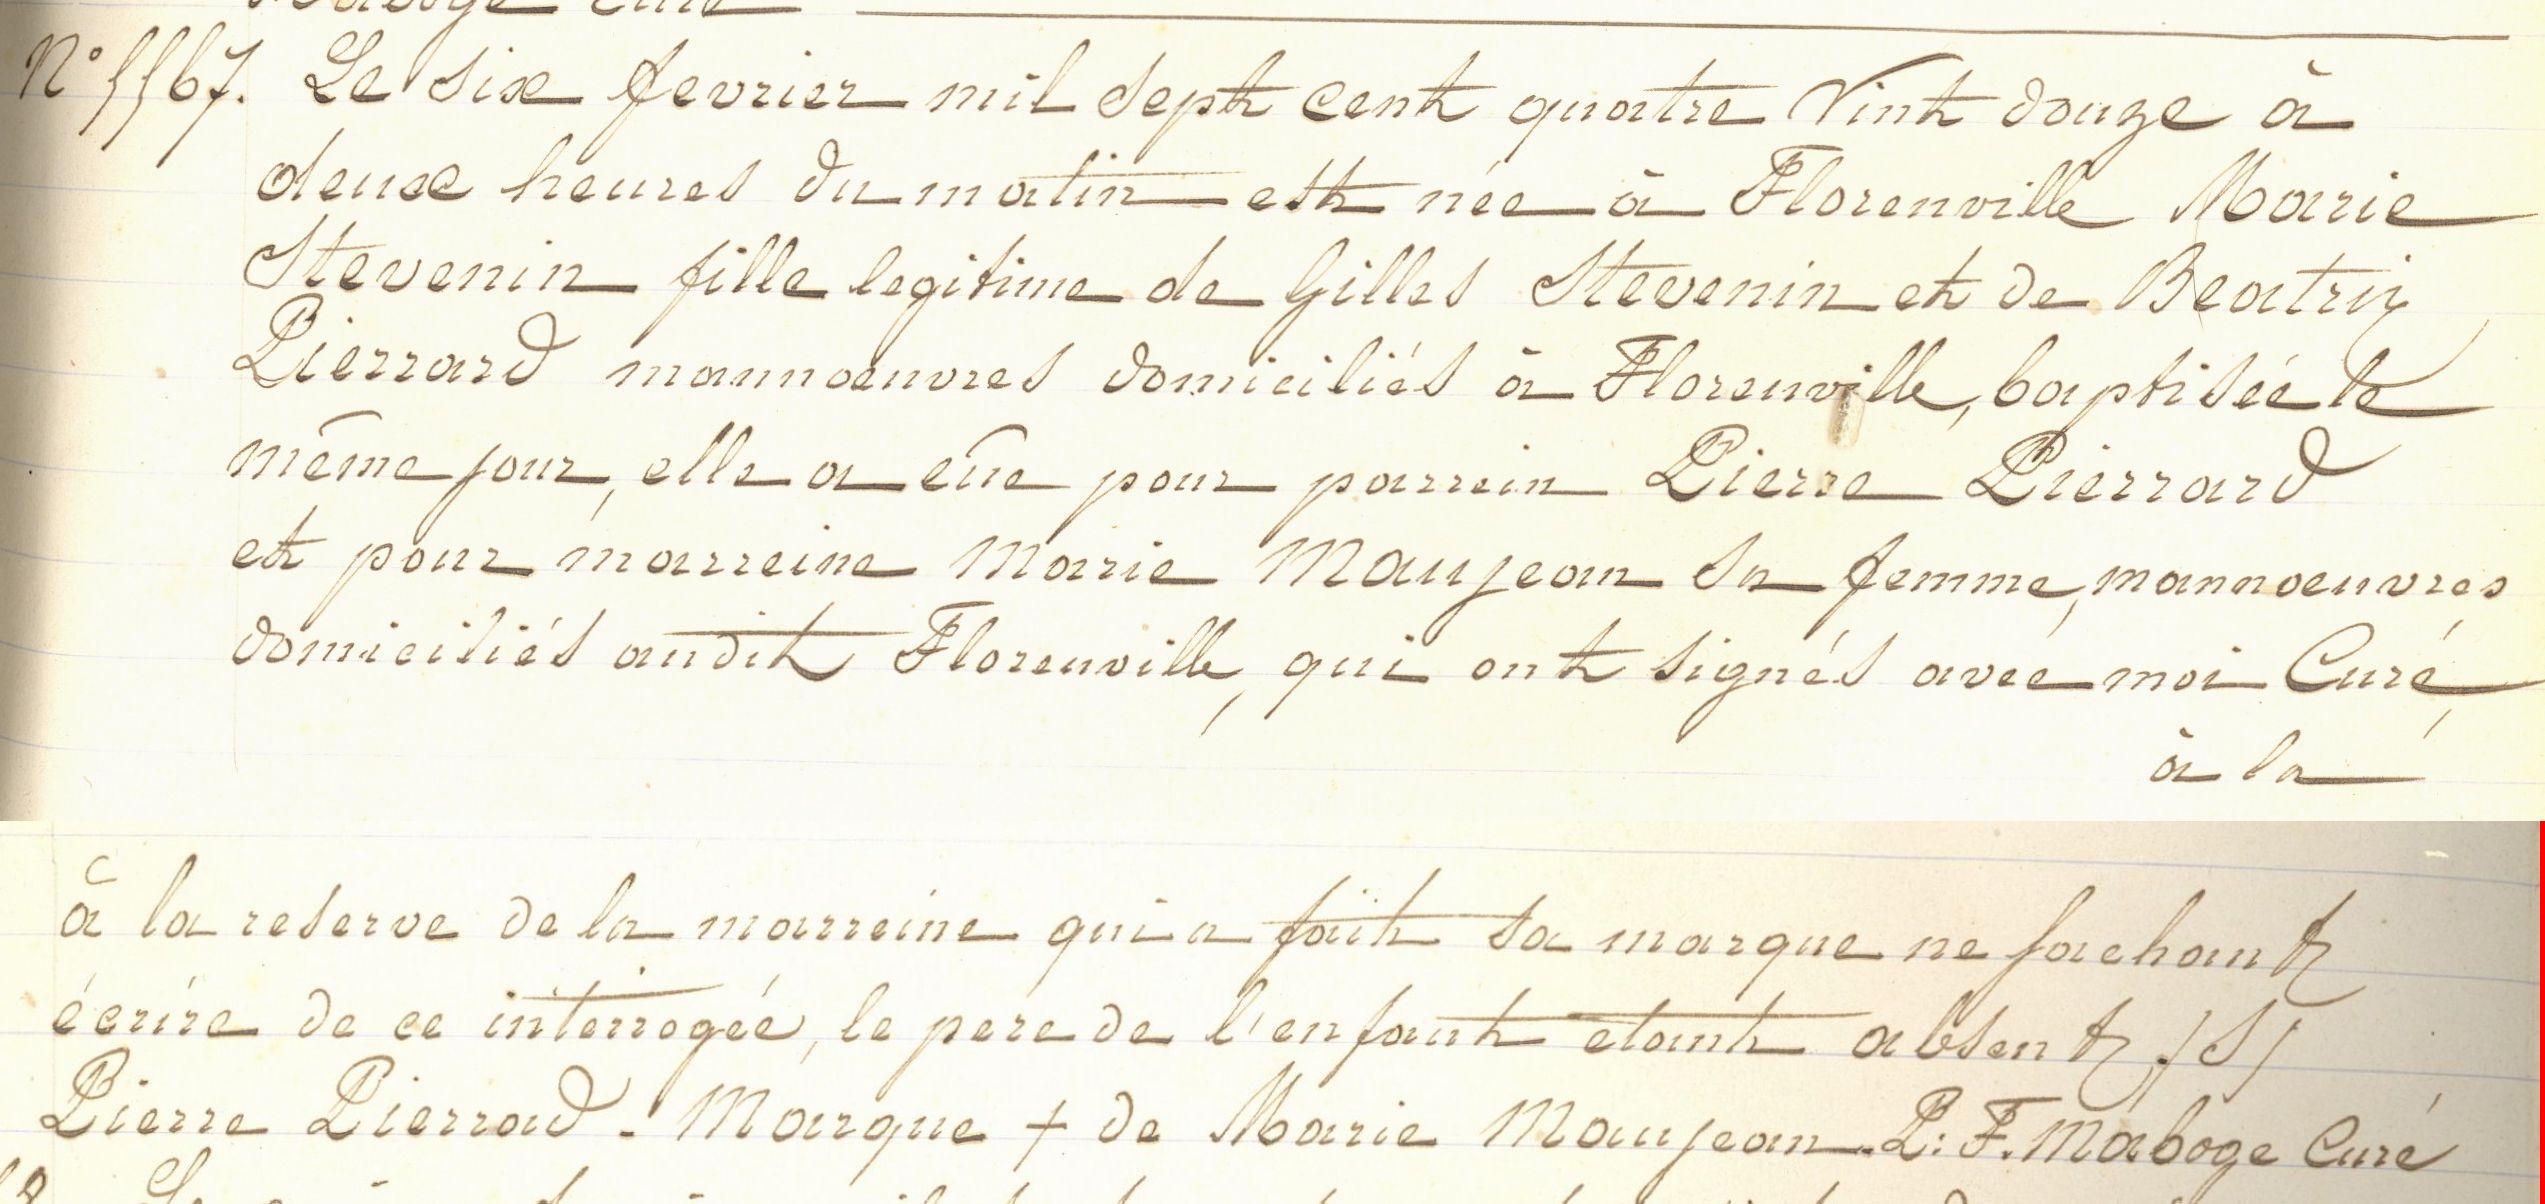 N° 5567. Le six fevrier mil sept cent quatre vint douze à
deuxe heures du matin est née à Florenville Marie
Stevenin fille legitime de Gilles Stevenin et de Beatrix
Pierrard mannoeuvres domiciliés à Florenville, baptisée le
même jour, elle a eüe pour parrein Pierre Pierrard
et pour marreine Marie Maujean sa femme, mannoeuvres
domiciliés audit Florenville, qui ont signés avec moi Curé,
à la
à la reserve de la marreine qui a fait sa marque ne sachant
écrire de ce interrogée, le pere de l'enfant etant absent /S/
Pierre Pierrad. Marque + de Marie Maujean. P: F. Maboge Curé